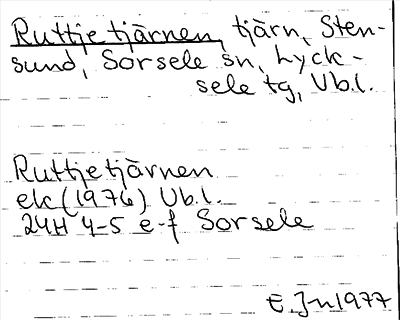 Ruttjetjärnen, tjärn, Sten-
sund, Sorsele sn, Lyck-
sele tg, Vb.l.
Ruttjetjärnen
elc (1976) Vb.l.
24H 4-5 e-f Sorsele
E.J-n 1977